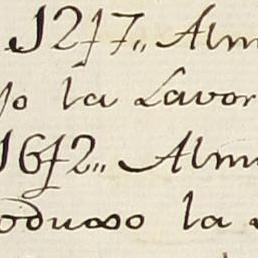 1277,, Alm
la Lavor
1672,, Alm
oduxo la